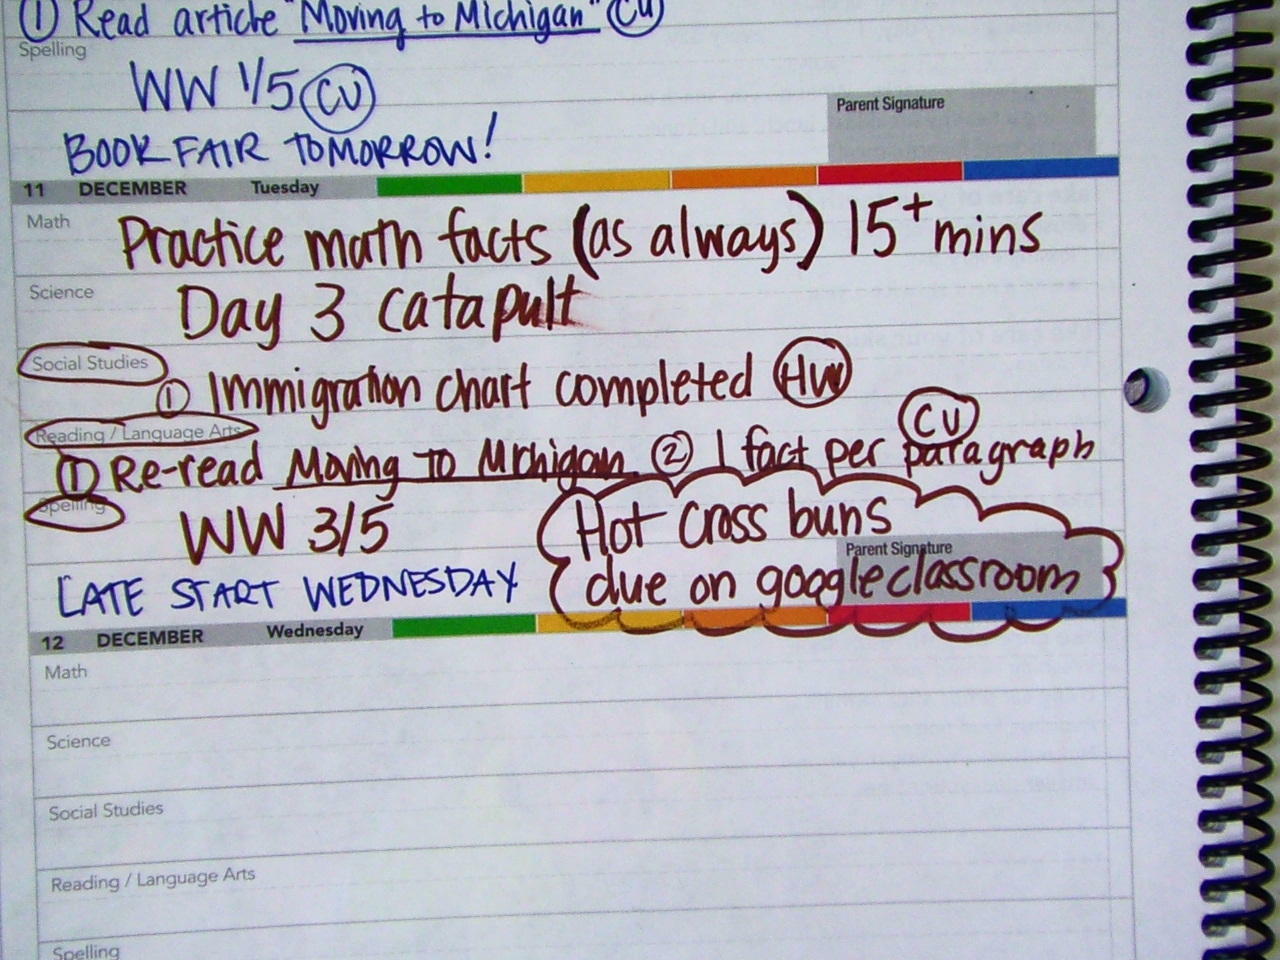 ① Read article "Moving to Michigan" CU
Spelling
WW 1/5 CU
Parent Signature
BOOK FAIR TOMORROW!
11 DECEMBER Tuesday
Math
Practice math facts (as always) 15+ mins
Science
Day 3 catapult
Social Studies
① Immigration chart completed HW
Reading / Language Arts
CU
① Re-read Moving to Michigan ② 1 fact per paragraph
Spelling
WW 3/5
Hot Cross buns
Parent Signature
due on google classroom
LATE START WEDNESDAY
12 DECEMBER Wednesday
Math
Science
Social Studies
Reading / Language Arts
Spelling